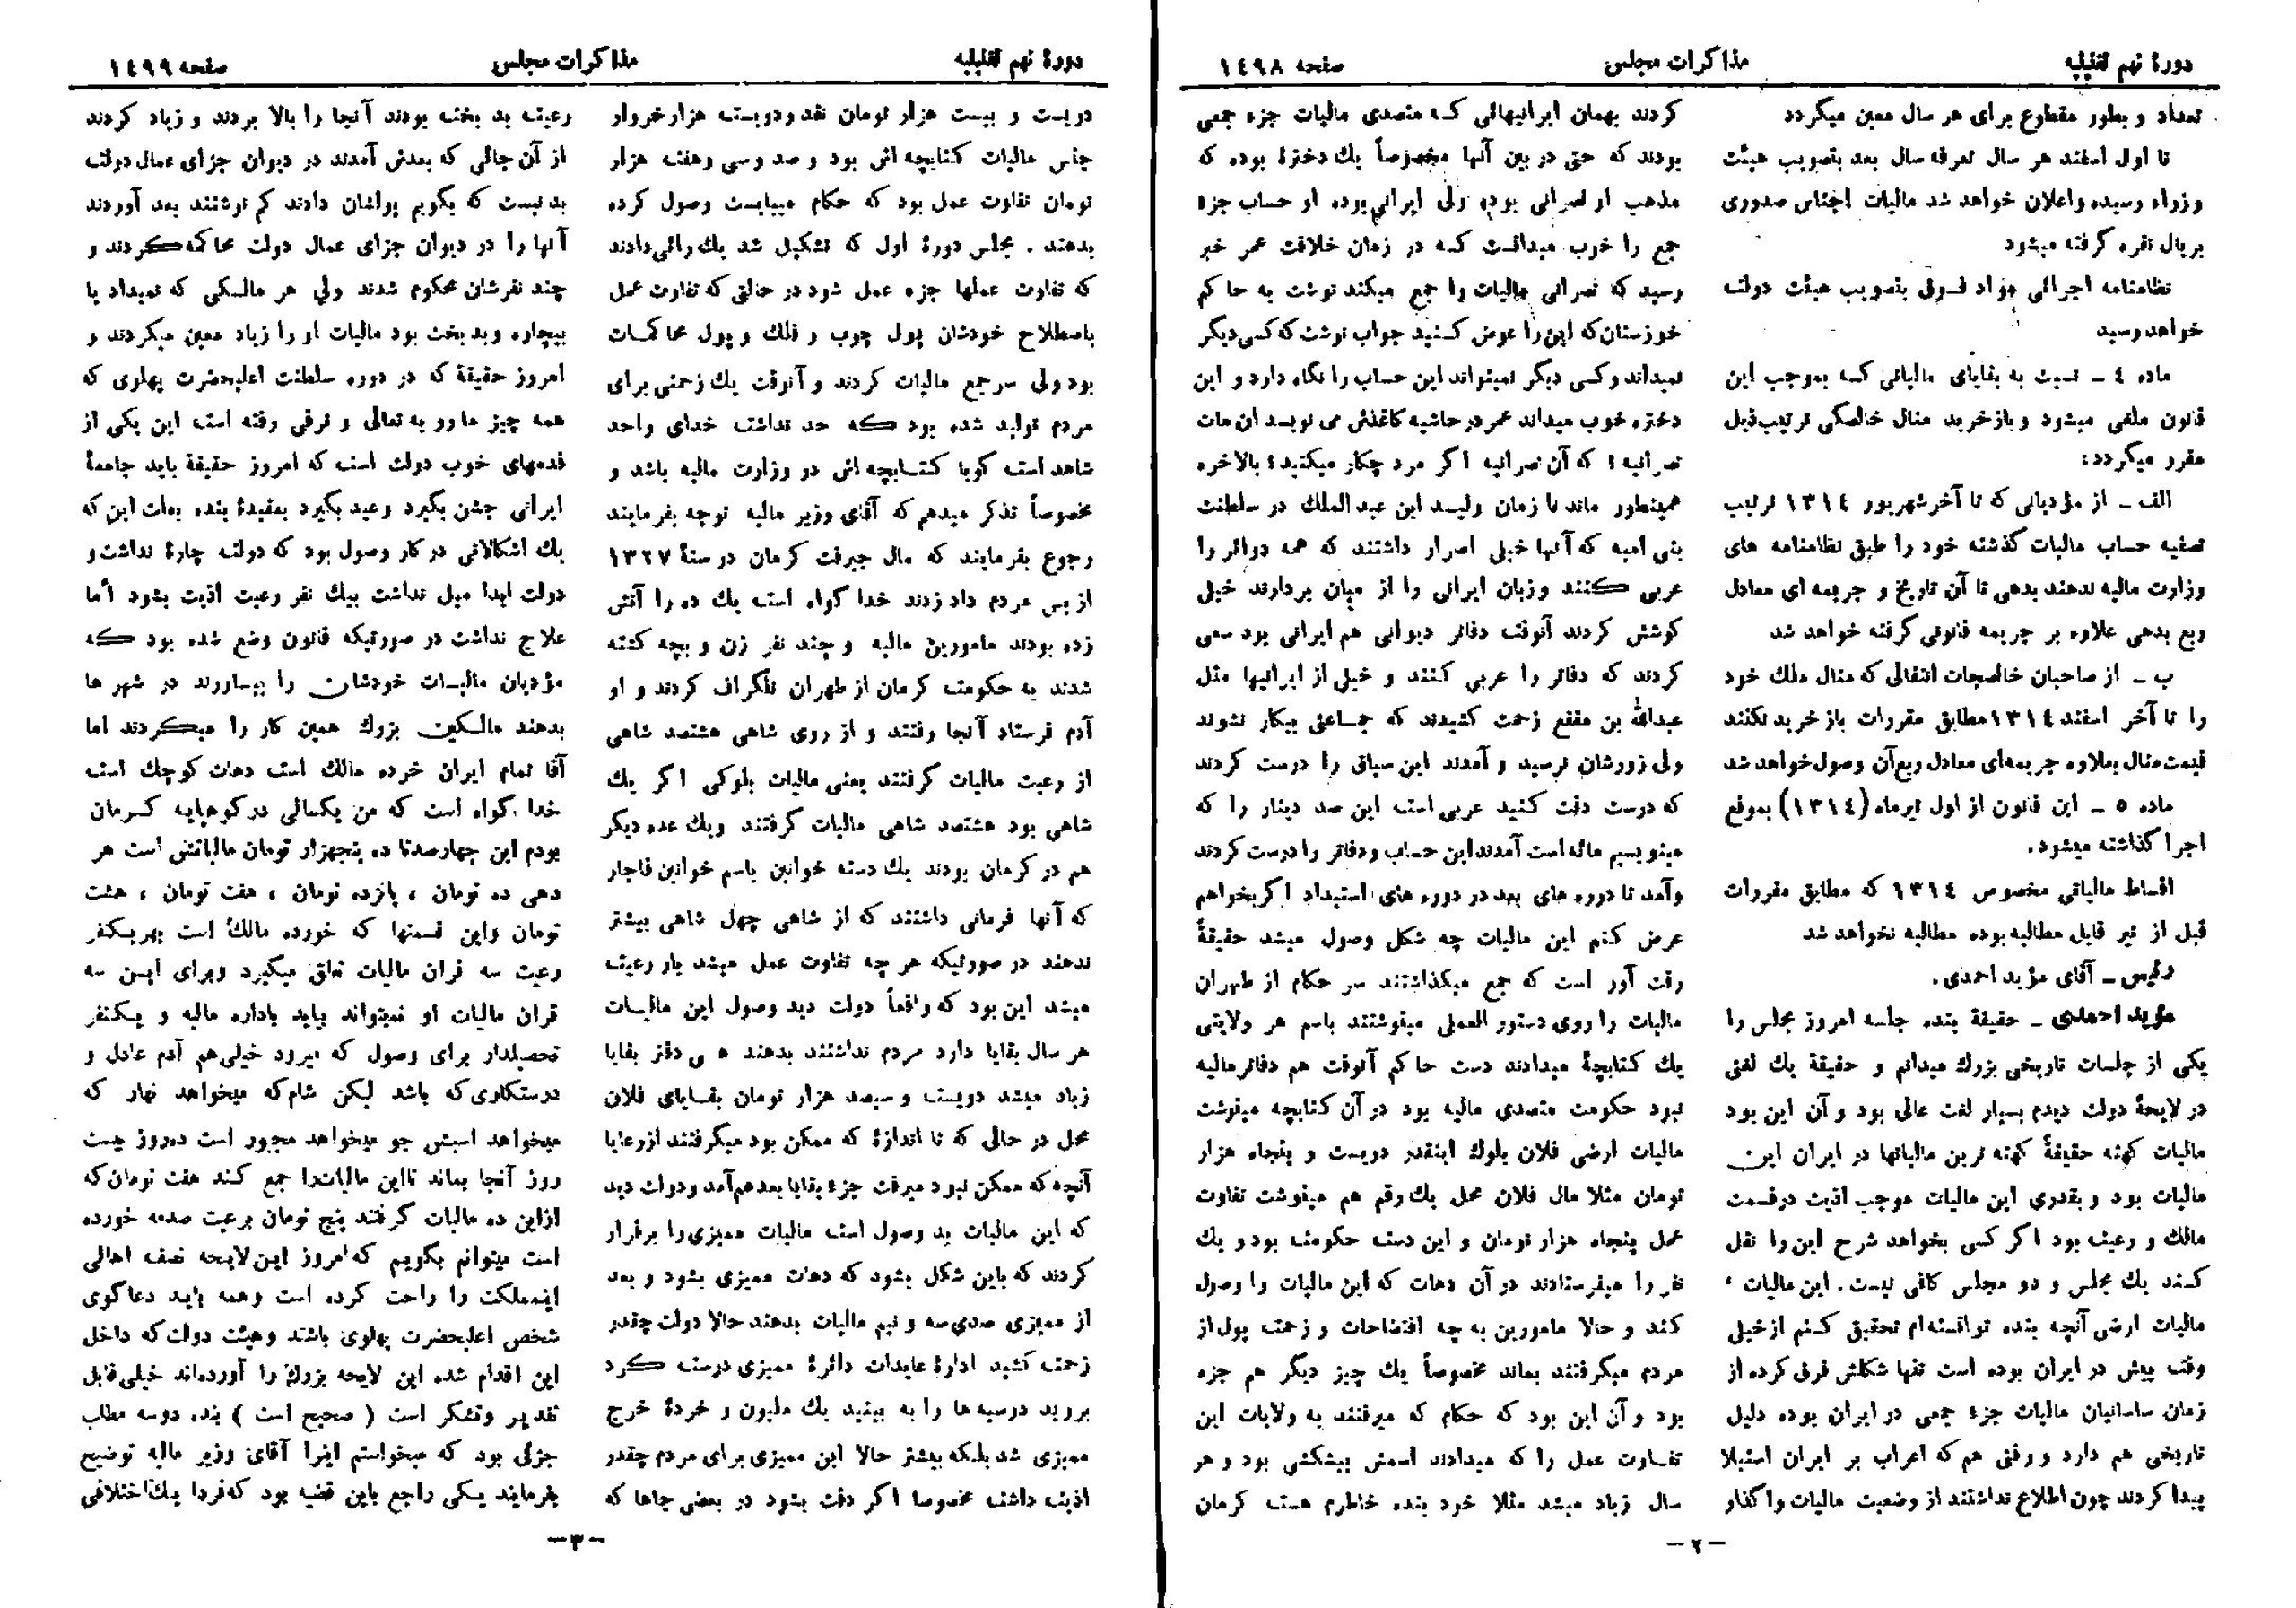 دورهٔ نهم تقنینیه
مذاکرات مجلس
صفحه ۱٤۹۸
تعداد و بطور مقطوع برای هر سال معین میگردد
تا اول اسفند هر سال تعرفه سال بعد بتصویب هیئت
وزراء رسیده و اعلان خواهد شد مالیات اجناس صدوری
بریال نقره گرفته میشود
نظامنامه اجرائی مواد فوق بتصویب هیئت دولت
خواهد رسید
ماده ٤ ـ نسبت به بقایای مالیاتی که بموجب این
قانون ملغی میشود و بازخرید منال خالصگی ترتیب ذیل
مقرر میگردد:
الف ـ از مؤدیانی که تا آخر شهریور ۱۳۱٤ ترتیب
تصفیه حساب مالیات گذشته خود را طبق نظامنامه های
وزارت مالیه ندهند بدهی تا آن تاریخ و جریمه ای معادل
ربع بدهی علاوه بر جریمه قانونی گرفته خواهد شد
ب ـ از صاحبان خالصجات انتقالی که منال ملک خود
را تا آخر اسفند ۱۳۱٤ مطابق مقررات بازخرید نکنند
قیمت منال بعلاوه جریمه‌ای معادل ربع آن وصول خواهد شد
ماده ٥ ـ این قانون از اول تیرماه (۱۳۱٤) بموقع
اجرا گذاشته میشود.
اقساط مالیاتی مخصوص ۱۳۱٤ که مطابق مقررات
قبل از تیر قابل مطالبه بوده مطالبه نخواهد شد
رئیس ـ آقای مؤید احمدی.
مؤید احمدی ـ حقیقة بنده جلسه امروز مجلس را
یکی از جلسات تاریخی بزرك میدانم و حقیقة یك لغتی
در لایحهٔ دولت دیدم بسیار لغت عالی بود و آن این بود
مالیات کهنه حقیقةً کهنه ترین مالیاتها در ایران این
مالیات بود و بقدری این مالیات موجب اذیت در قسمت
مالك و رعیت بود اگر کسی بخواهد شرح این را نقل
کند یك مجلس و دو مجلس کافی نیست. این مالیات ،
مالیات ارضی آنچه بنده توانسته‌ام تحقیق کنم از خیلی
وقت پیش در ایران بوده است تنها شکلش فرق کرده از
زمان سامانیان مالیات جزء جمعی در ایران بوده دلیل
تاریخی هم دارد و وقتی هم که اعراب بر ایران استیلا
پیدا کردند چون اطلاع نداشتند از وضعیت مالیات واگذار
کردند بهمان ایرانیهائی که متصدی مالیات جزء جمعی
بودند که حتی در بین آنها مخصوصاً یك دخترهٔ بوده که
مذهب او نصرانی بوده ولی ایرانی بوده او حساب جزء
جمع را خوب میدانست که در زمان خلافت عمر خبر
رسید که نصرانی مالیات را جمع میکند نوشت به حاکم
خوزستان که این را عوض کنید جواب نوشت که کسی دیگر
نمیداند و کسی دیگر نمیتواند این حساب را نگاه دارد و این
دختره خوب میداند عمر در حاشیه کاغذش می نویسد ان مات
نصرانیه؟ که آن نصرانیه اگر مرد چکار میکنید؟ بالاخره
همینطور ماند تا زمان ولید ابن عبدالملك در سلطنت
بنی امیه که آنها خیلی اصرار داشتند که همه دوائر را
عربی کنند و زبان ایرانی را از میان بردارند خیلی
کوشش کردند آنوقت دفاتر دیوانی هم ایرانی بود سعی
کردند که دفاتر را عربی کنند و خیلی از ایرانیها مثل
عبدالله بن مقفع زحمت کشیدند که جماعتی بیکار نشوند
ولی زورشان نرسید و آمدند این سیاق را درست کردند
که درست دقت کنید عربی است این صد دینار را که
مینویسیم مائه است آمدند این حساب و دفاتر را درست کردند
وآمد تا دوره های بعد در دوره های استبداد اگر بخواهم
عرض کنم این مالیات چه شکل وصول میشد حقیقةً
رقت آور است که جمع میگذاشتند سر حکام از طهران
مالیات را روی دستور العملی مینوشتند باسم هر ولایتی
یك کتابچهٔ میدادند دست حاکم آنوقت هم دفاتر مالیه
نبود حکومت متصدی مالیه بود در آن کتابچه مینوشت
مالیات ارضی فلان بلوك اینقدر دویست و پنجاه هزار
تومان مثلا مال فلان محل یك رقم هم مینوشت تفاوت
عمل پنجاه هزار تومان و این دست حکومت بود و یك
نفر را میفرستادند در آن دهات که این مالیات را وصول
کند و حالا مامورین به چه افتضاحات و زحمت پول از
مردم میگرفتند بماند مخصوصاً یك چیز دیگر هم جزء
بود و آن این بود که حکام که میرفتند به ولایات این
تفاوت عمل را که میدادند اسمش پیشکشی بود و هر
سال زیاد میشد مثلا خود بنده خاطرم هست کرمان
ـ ۲ ـ
دورهٔ نهم تقنینیه
مذاکرات مجلس
صفحه ۱٤۹۹
دویست و بیست هزار تومان نقد و دویست هزار خروار
جنس مالیات کتابچه اش بود و صد و سی و هفت هزار
تومان تفاوت عمل بود که حکام میبایست وصول کرده
بدهند . مجلس دورهٔ اول که تشکیل شد یك رائی دادند
که تفاوت عملها جزء عمل شود در حالتی که تفاوت عمل
باصطلاح خودشان پول چوب و فلك و پول محاکمات
بود ولی سر جمع مالیات کردند و آنوقت یك زحمتی برای
مردم تولید شده بود که حد نداشت خدای واحد
شاهد است گویا کتابچه اش در وزارت مالیه باشد و
مخصوصاً تذکر میدهم که آقای وزیر مالیه توجه بفرمایند
رجوع بفرمایند که مال جیرفت کرمان در سنهٔ ۱۳۲۷
از بس مردم داد زدند خدا گواه است یك ده را آتش
زده بودند مامورین مالیه و چند نفر زن و بچه کشته
شدند به حکومت کرمان از طهران تلگراف کردند و او
آدم فرستاد آنجا رفتند و از روی شاهی هشتصد شاهی
از رعیت مالیات گرفتند یعنی مالیات بلوکی اگر یك
شاهی بود هشتصد شاهی مالیات گرفتند ویك عده دیگر
هم در کرمان بودند یك دسته خوانین باسم خوانین قاجار
که آنها فرمانی داشتند که از شاهی چهل شاهی بیشتر
ندهند در صورتیکه هر چه تفاوت عمل میشد بار رعیت
میشد این بود که واقعاً دولت دید وصول این مالیات
هر سال بقایا دارد مردم نداشتند بدهند هی دفتر بقایا
زیاد میشد دویست و سیصد هزار تومان بقایای فلان
محل در حالی که تا اندازهٔ که ممکن بود میگرفتند از رعایا
آنچه که ممکن نبود میرفت جزء بقایا بعد هم آمد و دولت دید
که این مالیات بد وصول است مالیات ممیزی را برقرار
کردند که باین شکل بشود که دهات ممیزی بشود و بعد
از ممیزی صدی سه و نیم مالیات بدهند حالا دولت چقدر
زحمت کشید ادارهٔ عایدات دائرهٔ ممیزی درست کرد
بروید دوسیه ها را به بینید یك ملیون و خردهٔ خرج
ممیزی شد بلکه بیشتر حالا این ممیزی برای مردم چقدر
اذیت داشت مخصوصا اگر دقت بشود در بعضی جاها که
رعیت بد بخت بودند آنجا را بالا بردند و زیاد کردند
از آن جائی که بعدش آمدند در دیوان جزای عمال دولت
بد نیست که بگویم پولشان دادند کم نوشتند بعد آوردند
آنها را در دیوان جزای عمال دولت محاکمه کردند و
چند نفرشان محکوم شدند ولی هر مالکی که نمیداد یا
بیچاره و بد بخت بود مالیات او را زیاد معین میکردند و
امروز حقیقة که در دوره سلطنت اعلیحضرت پهلوی که
همه چیز ما رو به تعالی و ترقی رفته است این یکی از
قدمهای خوب دولت است که امروز حقیقة باید جامعهٔ
ایرانی جشن بگیرد و عید بگیرد بعقیدهٔ بنده بعلت این که
یك اشکالاتی در کار وصول بود که دولت چارهٔ نداشت و
دولت ابدا میل نداشت بیك نفر رعیت اذیت بشود اما
علاج نداشت در صورتیکه قانون وضع شده بود که
مؤدیان مالیات خودشان را بیاورند در شهر ها
بدهند مالکین بزرك همین کار را میکردند اما
آقا تمام ایران خرده مالك است دهات کوچك است
خدا گواه است که من یکسالی در کوهپایه کرمان
بودم این چهارصد تا ده پنجهزار تومان مالیاتش است هر
دهی ده تومان ، پانزده تومان ، هفت تومان ، هشت
تومان و این قسمتها که خورده مالك است بهر یکنفر
رعیت سه قران مالیات تعلق میگیرد و برای این سه
قران مالیات او نمیتواند بیاید باداره مالیه و یکنفر
تحصیلدار برای وصول که میرود خیلی هم آدم عادل و
درستکاری که باشد لیکن شام که میخواهد نهار که
میخواهد اسبش جو میخواهد مجبور است ده روز بیست
روز آنجا بماند تا این مالیات را جمع کند هفت تومان که
از این ده مالیات گرفتند پنج تومان برعیت صدمه خورده
است میتوانم بگویم که امروز این لایحه نصف اهالی
اینمملکت را راحت کرده است و همه باید دعا گوی
شخص اعلیحضرت پهلوی باشند و هیئت دولت که داخل
این اقدام شده این لایحه بزرك را آورده‌اند خیلی قابل
تقدیر و تشکر است ( صحیح است ) بنده دو سه مطلب
جزئی بود که میخواستم اینرا آقای وزیر مالیه توضیح
بفرمایند یکی راجع باین قضیه بود که فردا یك اختلافی
ـ ۳ ـ